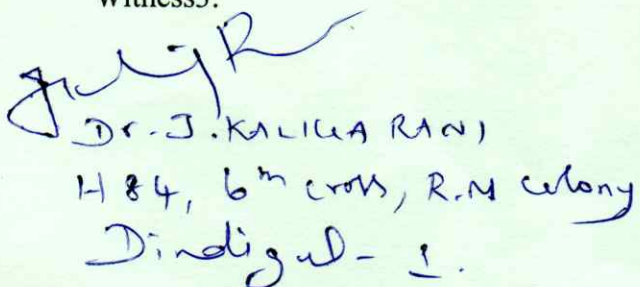 Witness3:
Dr. J. KALIKA RANI
H 84, 6th cross, R.M colony
Dindigul - 1.